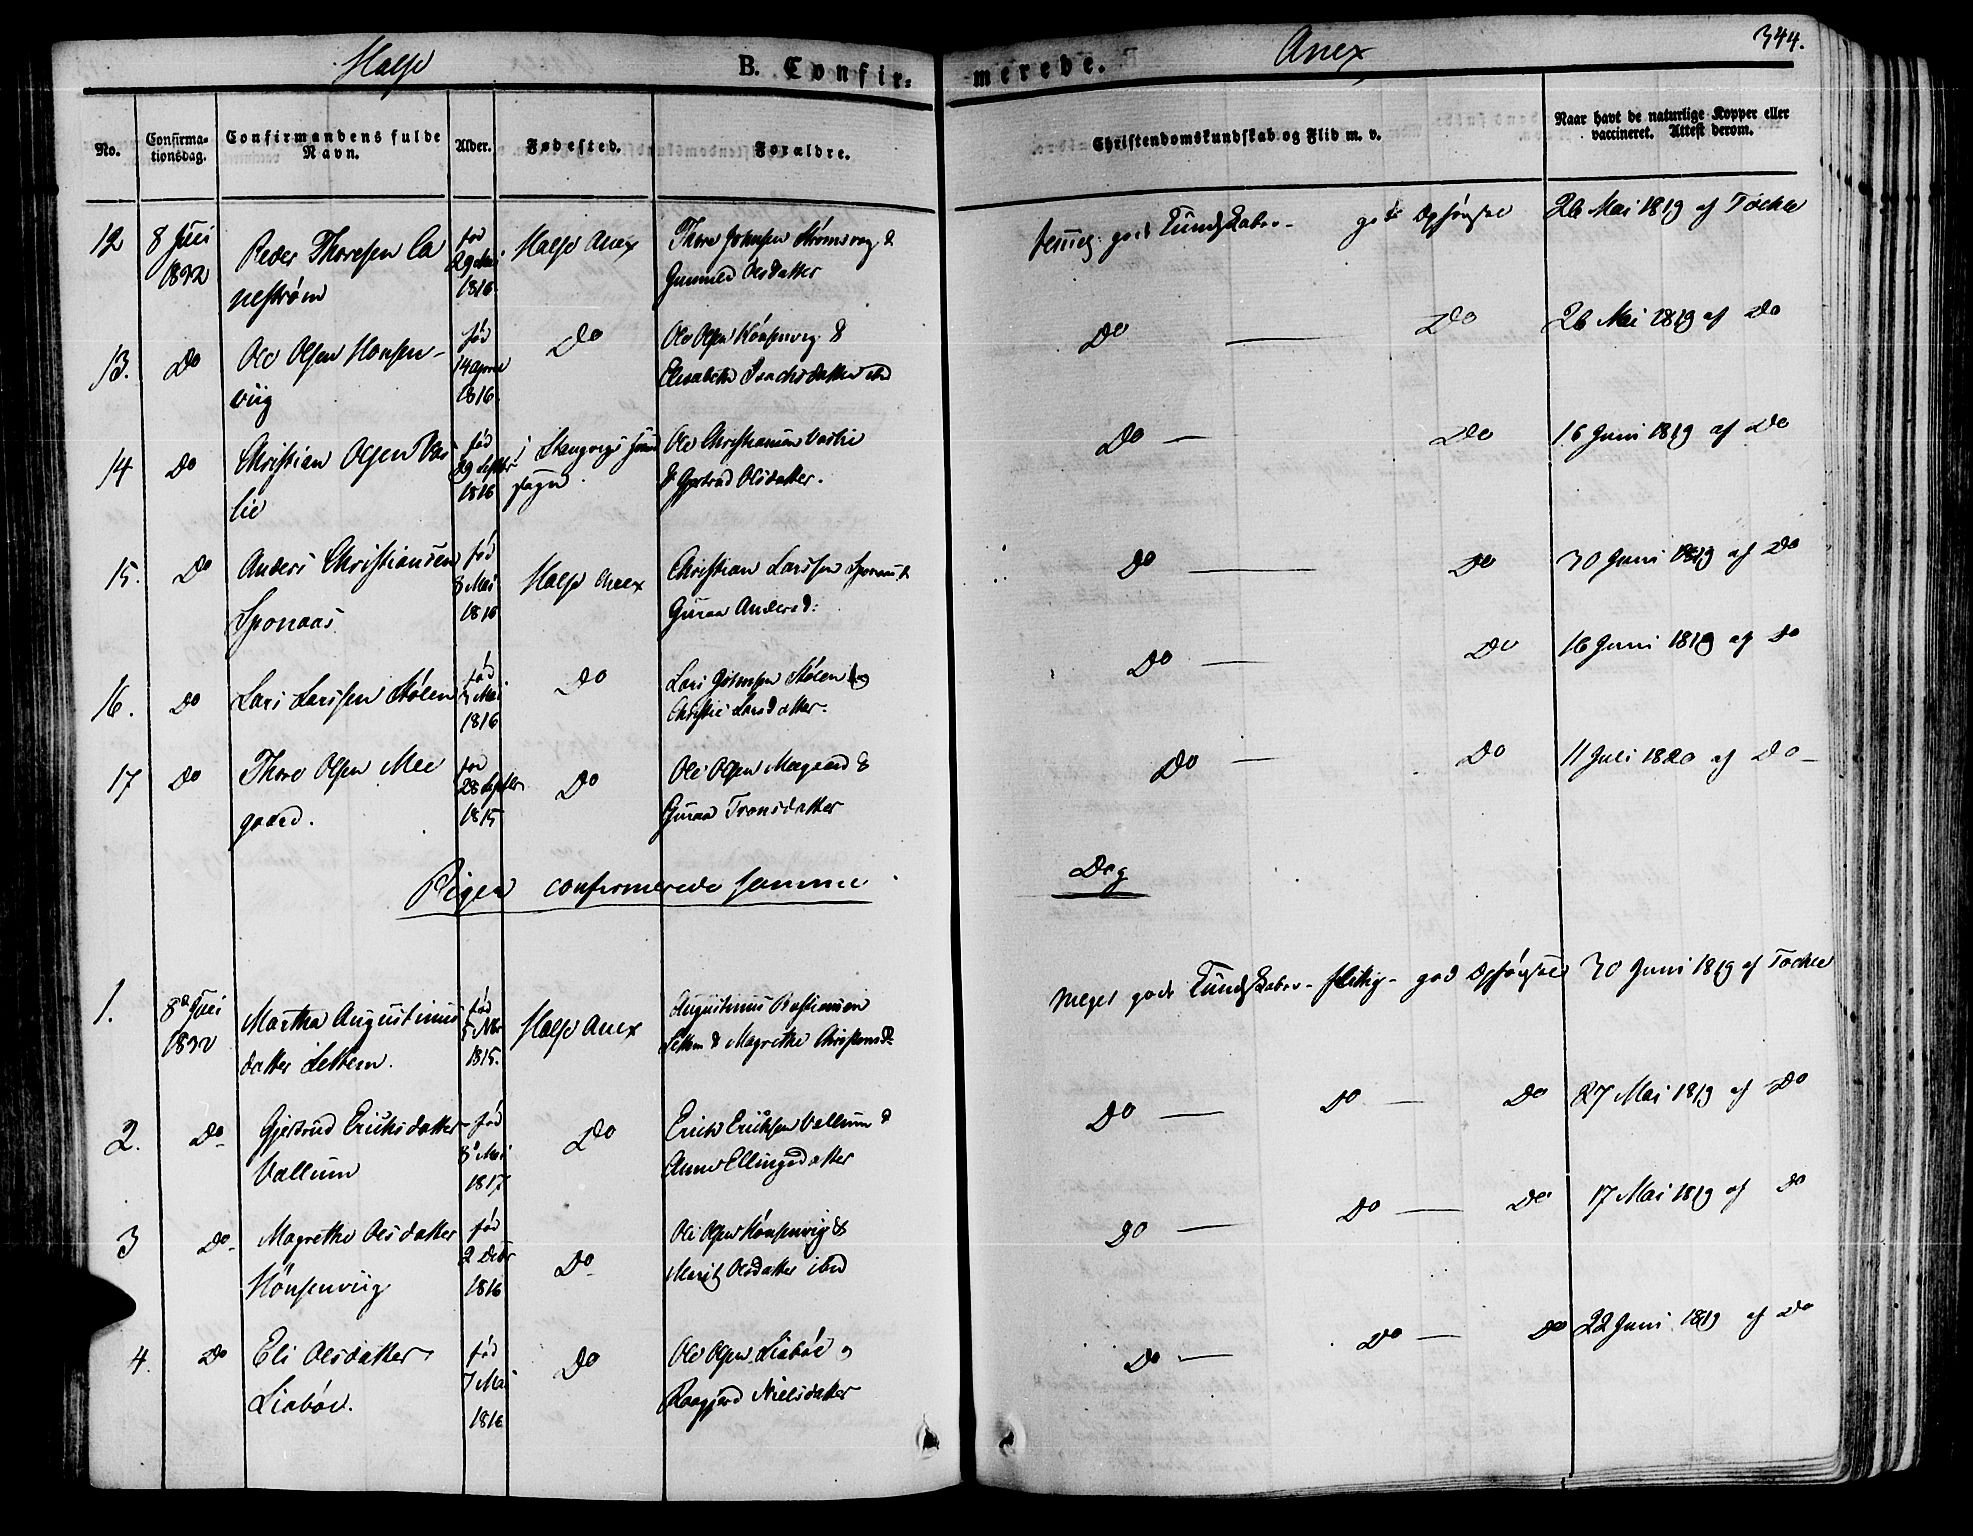 Halse
B. Confir-
merede.
Anex
344.
No.
Confirma-
tionsdag.
Confirmandens fulde
Navn.
Alder.
Fødested.
Forældre.
Christendomskundskab og Flid m. v.
Naar havt de naturlige Kopper eller
vaccineret. Attest derom.
12
8 Juli
1832
Peder Thoresen Ca
nestrøm
fød
29 Mai
1816
Halse Anex
Thore Johnsen &
Gunnild Olsdatter
gode Kundskaber - god Opførsel
26 Mai 1819 af Tøchle
13.
Do
Ole Olsen Honsen-
viig
fød
14 April
1816
Do
Ole Olsen Hónsenvig &
Elisabeth Isachsdatter ibd
Do — Do
26 Mai 1819 af Do
14
Do
Christian Olsen Var
lie
fød
29 Septbr
1816
i Stangvigs
sogn
Ole Christiansen Varlie
& Gjertrud Olsdatter.
Do — Do
16 Juni 1819 af Do
15.
Do
Anders Christiansen
Sponaas
fød
8 Mai
1816
Halse Anex
Christian Larssen &
Guraa Andersd:
Do — Do
30 Juni 1819 af Do
16.
Do
Lars Larssen Stølen
fød
Mai
1816
Do
Lars Stølen og
Christie Larsdatter
Do — Do
16 Juni 1819 af Do
17
Do
Thore Olsen Mee
gaard.
fød
28 Septbr
1815
Do
Ole Olsen &
Guraa Tronsdatter
Do — Do
11 Juli 1820 af Do
Piger confirmerede samme
Dag
1.
8de Juli
1832
Martha Augustinus
datter Lettem.
fød
5 Nbr
1815.
Halse Anex
Augustinus Bastiansen
Lettem & Magrethe Christensd
Meget gode Kundskaber - flittig - god Opførsel
30 Juni 1819 af Tøchle
2.
Do
Gjertrud Ericksdatter
Vallum
fød
8 Mai
1817
Do
Erick Ericksen Vallum &
Anne Ellingsdatter
Do — Do — Do
27 Mai 1819 af Do
3
Do
Magrethe Olsdatter
Hónsenviig
fød
2 Debr
1816
Do
Ole Olsen Hónsenvig &
Marit Olsdatter ibd
Do — Do — Do
17 Mai 1819 af Do
4.
Do
Eli Olsdatter
Liabøe.
fød
7 Mai
1816
Do
Ole Olsen Liabøe og
Raagjerd Nielsdatter
Do — Do — Do
22 Juni 1819 af Do